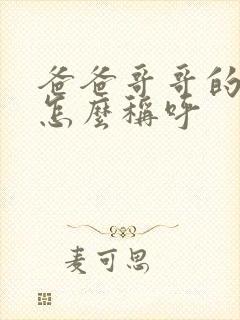 爸爸哥哥的
怎麼稱呼
麦可思